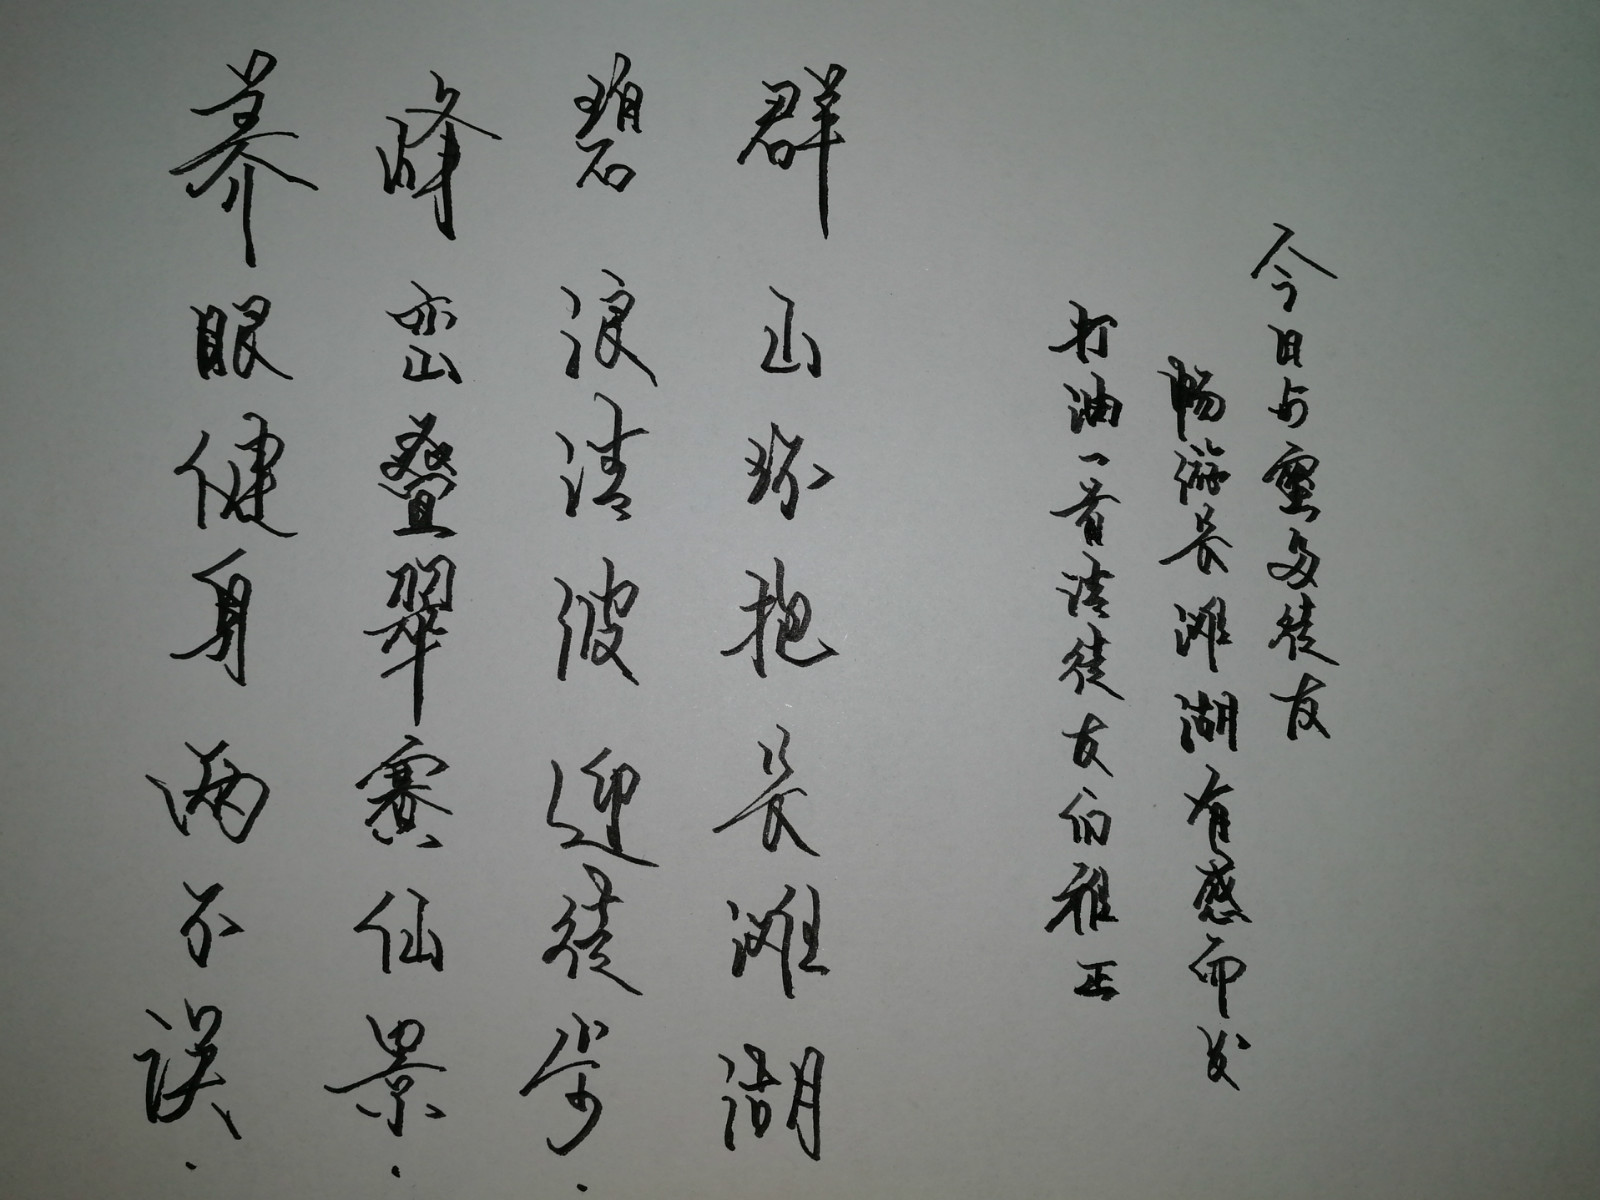 今日与众多徒友
畅游长滩湖有感而发
打油一首请徒友们雅正
群山环抱长滩湖
碧浪清波迎徒步.
峰峦叠翠赛仙景.
养眼健身两不误.